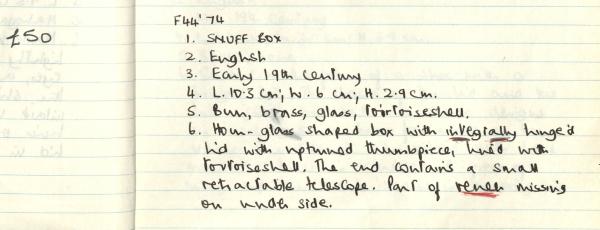 F44'74
£50
1. SNUFF BOX
2. English
3. Early 19th century
4. L. 10.3 cm; W. 6 cm; H. 2.9 cm.
5. Burr, brass, glass, tortoiseshell.
6. Hour-glass shaped box with integrally hinged
lid with upturned thumbpiece, lined with
tortoiseshell. The end contains a small
retractable telescope. Part of veneer missing
on under side.